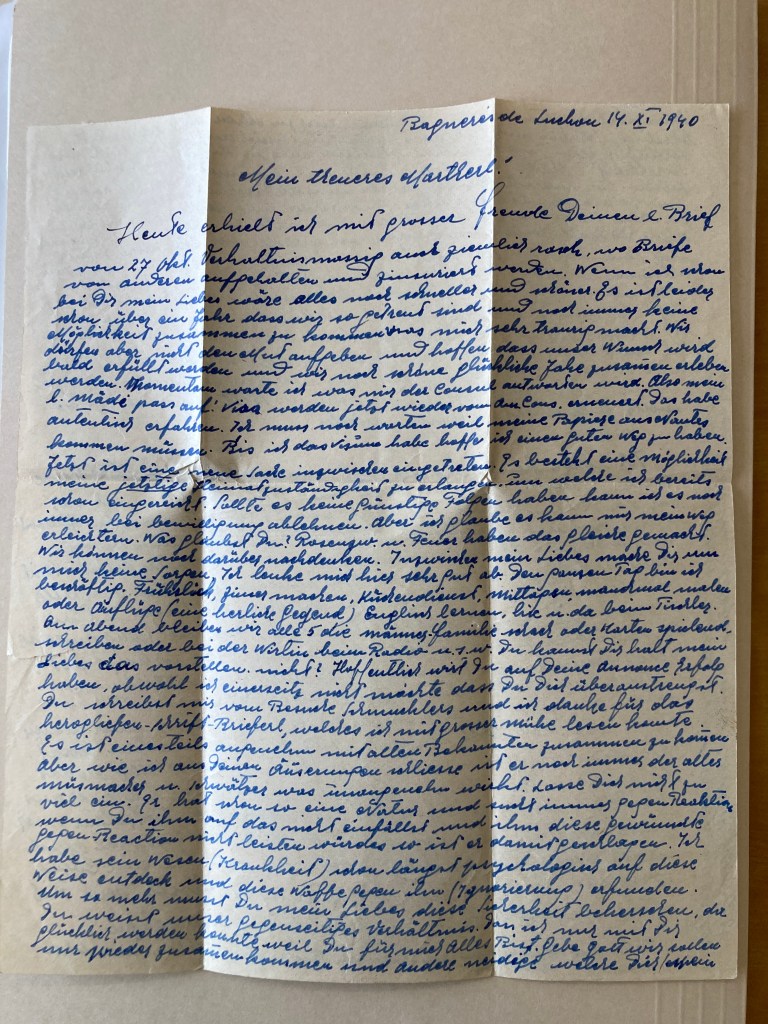 Bagneres de Luchon 14. XI 1940
Mein theueres Martherl!
Heute erhielt ich mit grosser Freude Deinen l. Brief
von 27 Okt. Verhältnismässig auch ziemlich rasch, wo Briefe
von anderen aufgehalten und zinsuriert werden. Wenn ich schon
bei Dir mein Liebes wäre alles noch schneller und schöner. Es ist leider
schon über ein Jahr dass wir so getrent sind und noch immer keine
Möglichkeit zusammen zu kommen was mich sehr traurig macht. Wir
dürfen aber nicht den Mut aufgeben und hoffen dass unser Wunsch wird
bald erfüllt werden und wir noch schöne glückliche Jahre zusamen erleben
werden. Momentan warte ich was mir der Consul antworten wird. Also mein
l. Mädi pass auf! Visa werden jetzt wieder vom am. Cons. erneuert. Das habe
autentisch erfahren. Ich muss noch warten weil meine Papiere aus Nantes
kommen müssen. Bis ich das Visum habe hoffe ich einen guten Weg zu haben.
Jetzt ist eine neue Sache inzwischen eingetreten. Es besteht eine Möglichkeit
meine jetztige Heimatzuständigheit zu erlangen um welche ich bereits
schon eingereicht. Sollte es keine günstige Folgen haben kann ich es noch
immer bei bewilligung ablehnen. Aber ich glaube es kann nur mein Weg
erleichtern. Was glaubst Du? Rosenzw. u. Feuer haben das gleiche gemacht.
Wir können noch darüber nachdenken. Inzwischen mein Liebes mache Dir um
mich keine Sorgen. Ich lenke mich hier sehr gut ab. Den ganzen Tag bin ich
beschäftig. Frühstück, zimer machen, Küchendienst, mittagen, manchmal malen
oder Ausflüge (eine herliche Gegend) Englisch lernen, hie u. da beim Tischler.
Am abend bleiben wir alle 5 die männer-familie schach oder Karten spielend,
schreiben oder bei der Wirtin beim Radio u.s.w. Du kannst Dir halt mein
Liebes das vorstellen. nicht? Hoffentlich wirst Du auf Deine annonce Erfolg
haben, obwohl ich einerseits nicht möchte dass Du Dich überanstrengst.
Du schreibst mir vom Besuche Schmuchlers und ich danke für das
herogliefen-Schrift-Brieferl, welches ich mit grosser mühe lesen konnte.
Es ist einesteils angenehm mit allen Bekannten zusammen zu komen
aber wie ich aus Deinen Äuserungen schliesse ist er noch immer der altes
miismacher u. schwätzer was unangenehm wirkt. Lasse Dich nicht zu
viel ein. Er hat schon so eine Natur und sucht immer gegen Reaktion
wenn Du ihm auf das nicht einfällst und ihm diese gewünschte
gegen Reaction nicht leisten würdes so ist er damit geschlagen. Ich
habe sein Wesen (Krankheit) schon längst psychologisch auf diese
Weise entdeck und diese Waffe gegen ihm (Ignorierung) erfunden.
Um so mehr musst Du mein Liebes diese Sicherheit beherschen, da
Du weisst unser gegenseitiges Verhältnis. Das ich nur mit Dir
glücklich werden konnte weil Du für mich Alles Bist. Gebe Gott wir sollen
nur wieder zusamen kommen und andere neidige welche Dich